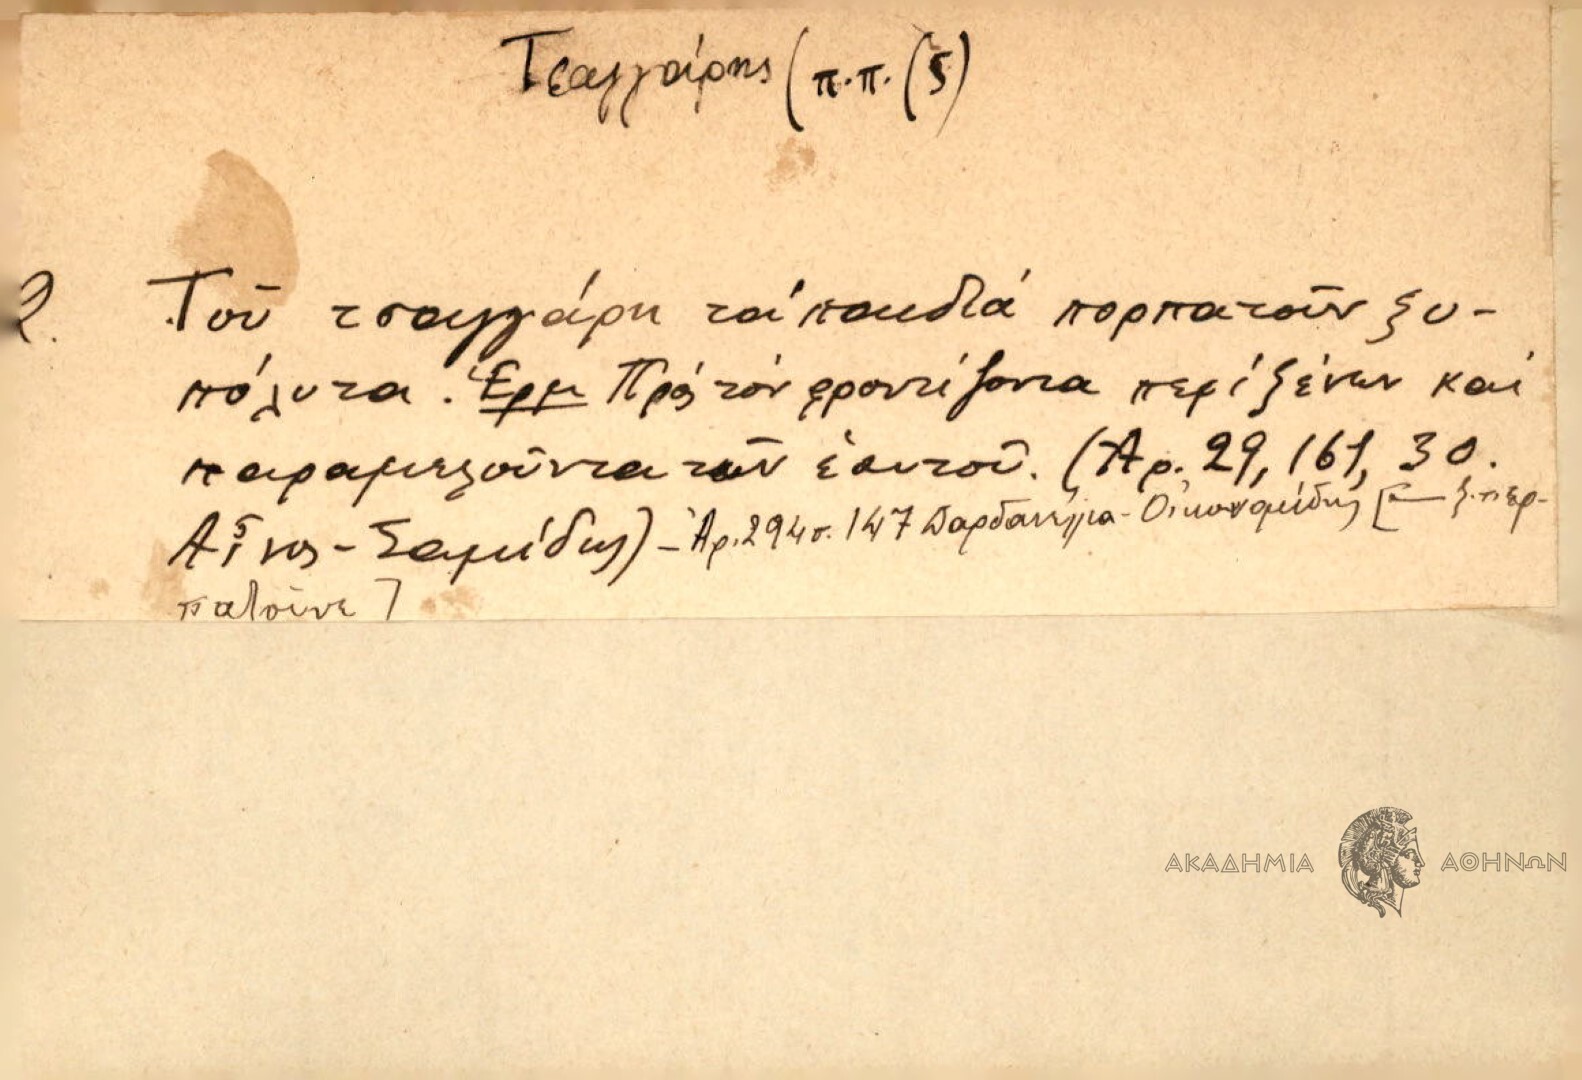 Τσαγγάρης (π.π. (5)
2. Τοῦ τσαγγάρη τά παιδιά πορπατοῦν ξυ-
πόλυτα. Ἑρμ Πρός τόν φροντίζοντα περί ξένων καί
παραμελοῦντα τῶν ἑαυτοῦ. (Ἀρ. 29, 161, 30.
Αἶνος - Σαμίδης) - Ἀρ. 294 σ. 147 Δαρδανέλλια - Οἰκονομίδης [ ξ. περ-
πατοῦνε]
ΑΚΑΔΗΜΙΑ ΑΘΗΝΩΝ